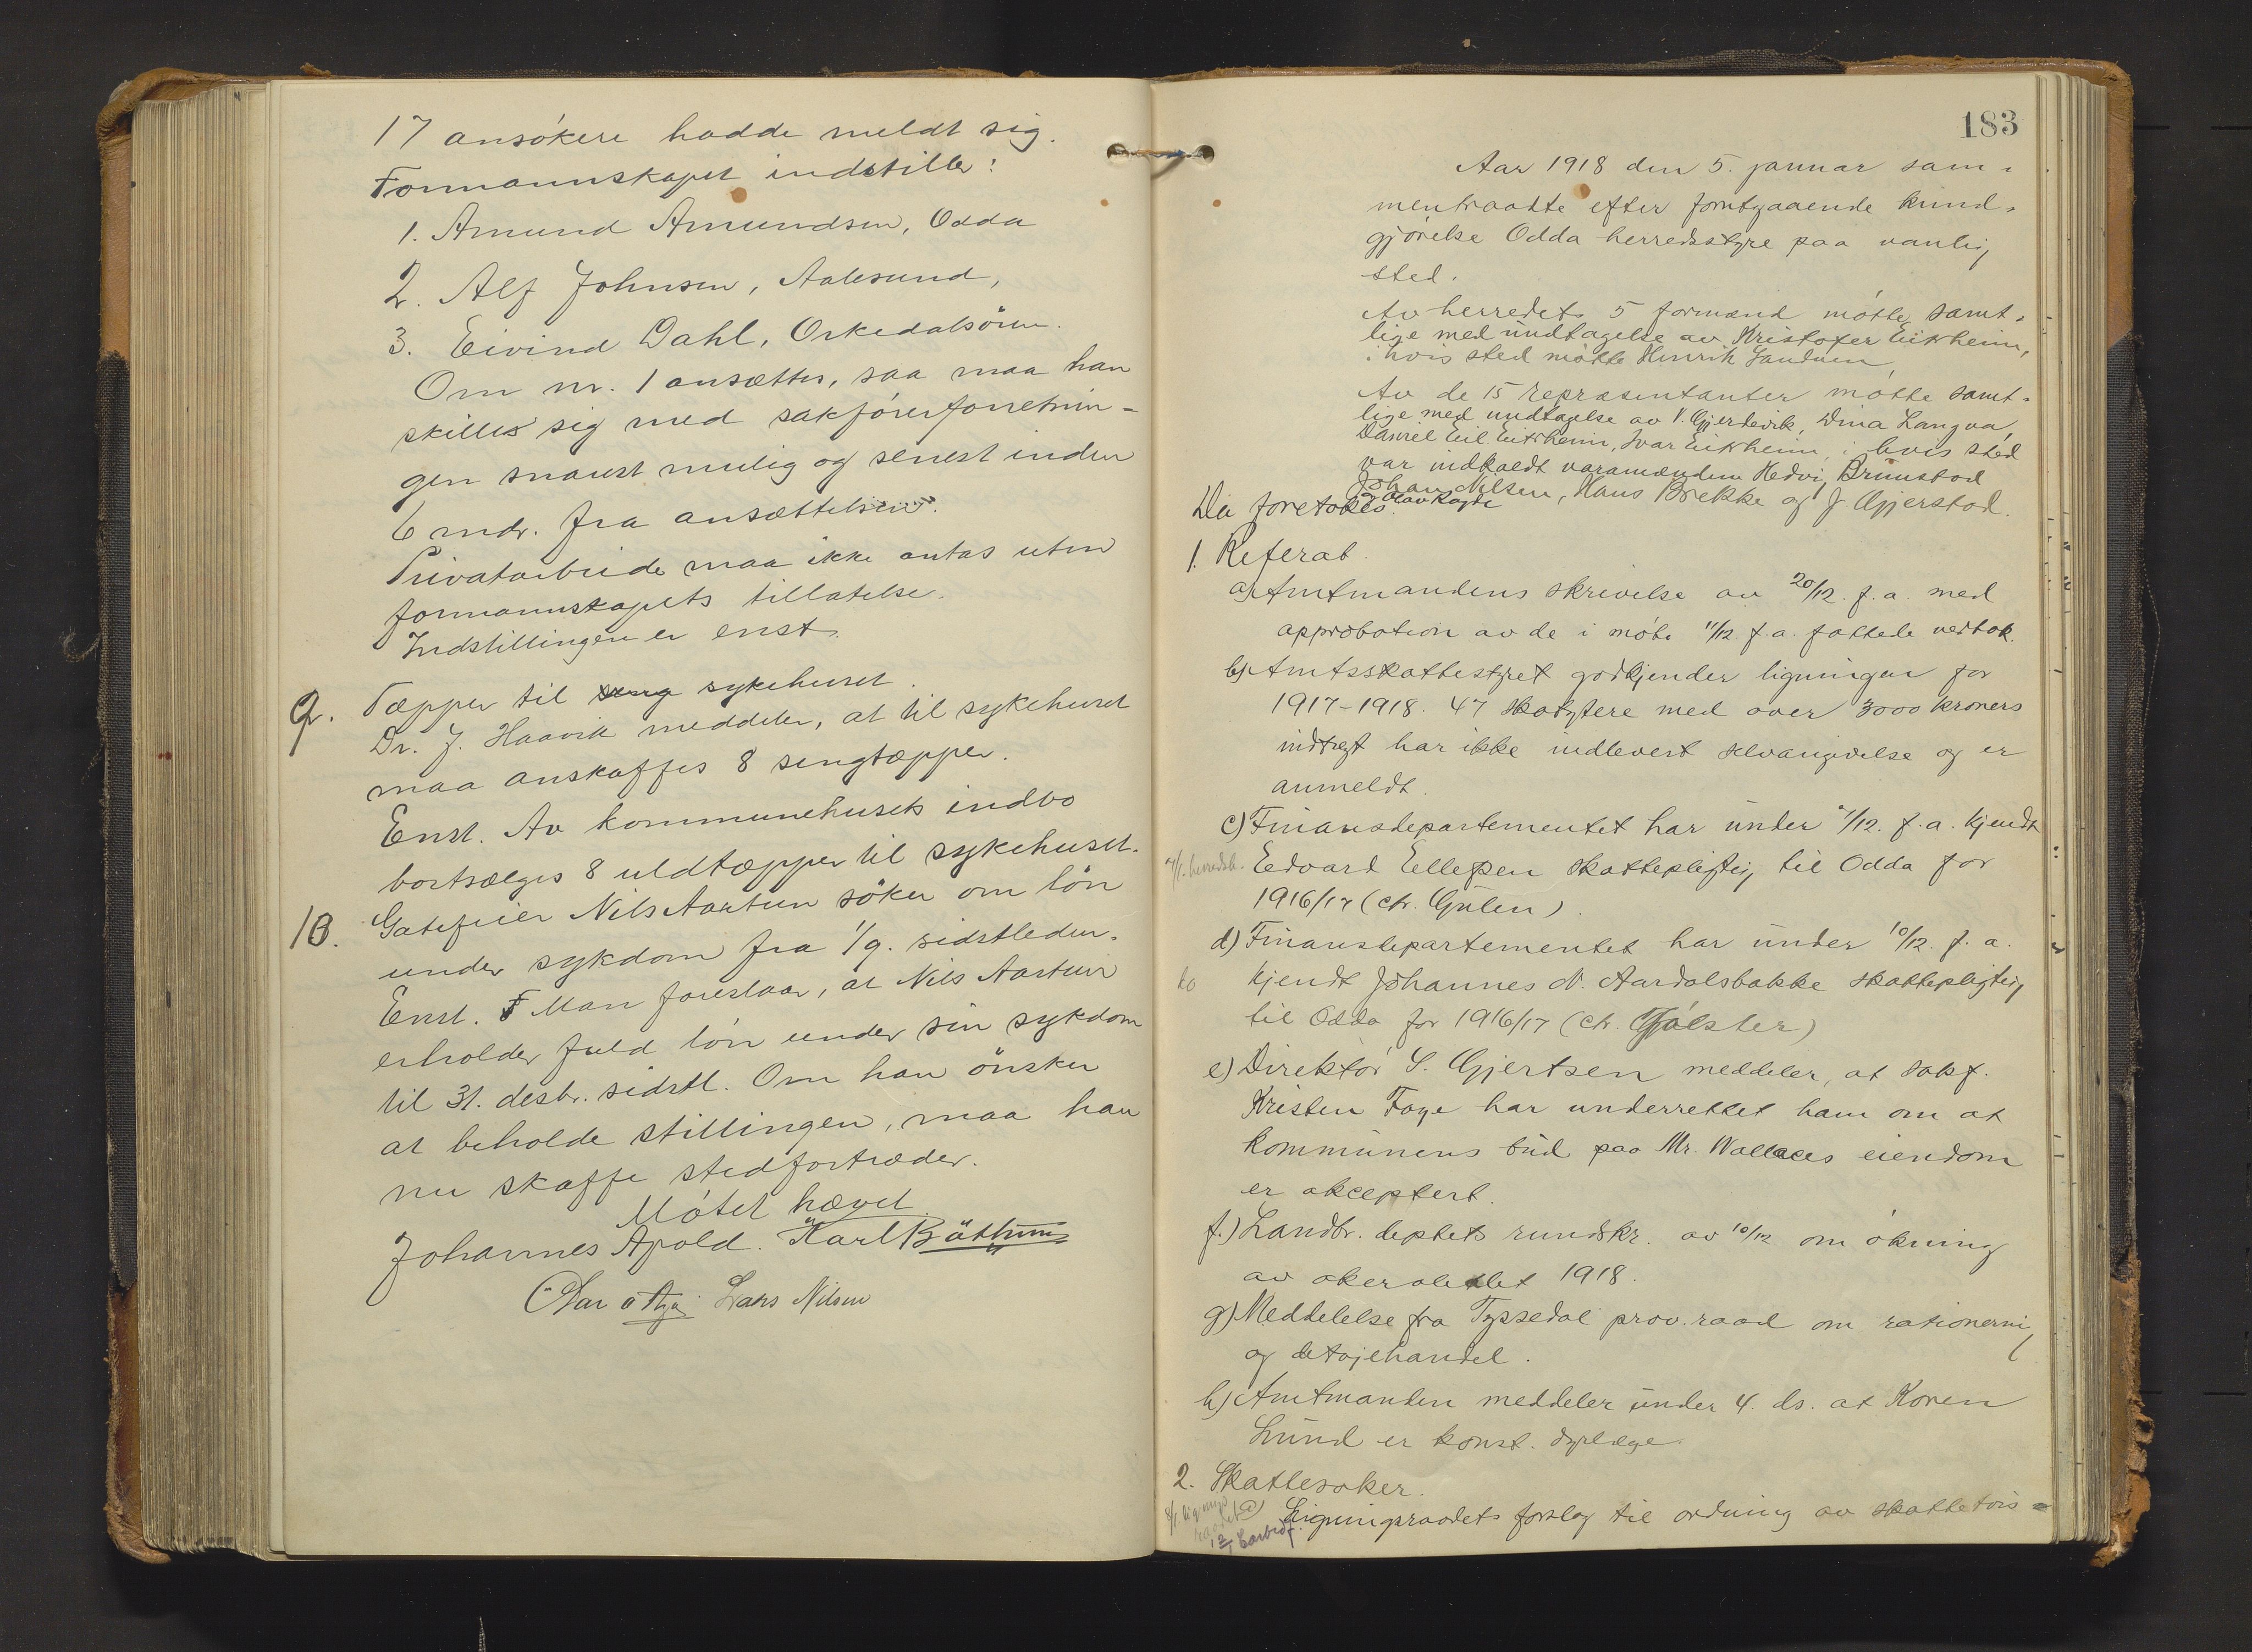 17 ansökere hadde meldt sig.
Formannskapet indstiller:
1. Amund Amundsen, Odda
2. Alf Johnsen, Aalesund,
3. Eivind Dahl, Orkedalsören.
Om nr. 1 ansættes, saa maa han
skilles sig med sakförerforretnin-
gen snarest mulig og senest inden
6 mdr. fra ansættelsen.
Privatarbeide maa ikke antas uten
formannskapets tillatelse.
Indstillingen er enst.
9. Tæpper til sykehuset.
Dr. J. Haavik meddeler, at til sykehuset
maa anskaffes 8 sengtæpper.
Enst. Av kommunehusets indbo
bortsælges 8 uldtæpper til sykehuset.
10. Gatefeier Nils Aartun söker om lön
under sykdom fra 1/9. sidstleden.
Enst. Man foreslaar, at Nils Aartun
erholder fuld lön under sin sykdom
til 31. desbr. sidstl. Om han önsker
at beholde stillingen, maa han
nu skaffe stedfortræder.
Mötet hævet.
Johannes Apold. Karl Böthun
Lars Nilsen
183
Aar 1918 den 5. januar sam-
mentraadte efter forutgaaende kund-
gjörelse Odda herredsstyre paa vanlig
sted.
Av herredets 5 formænd mötte samt-
lige med undtagelse av Kristofer Eitrheim,
i hvis sted mötte Henrik Sandven
Av de 15 repræsentanter mötte samt-
lige med undtagelse av V. Gjerdevik, Dina Langva,
Daniel Eil. Eitrheim, Ivar Eitrheim, i hvis sted
var indkaldt varamændene Hedvig Brunstad
Johan Nilsen, Hans Brekke og J. Gjerstad.
og Olav Ragde
Da foretokes
1. Referat.
a) Amtmandens skrivelse av 20/12. f.a. med
approbation av de i möte 11/12. f.a. fattede vedtak.
b) Amtsskattestyret godkjender ligningen for
1917-1918. 47 skatytere med over 3000 kroners
indtægt har ikke indlevert selvangivelse og er
anmeldt.
c) Finansdepartementet har under 7/12. f.a. kjendt
Edvard Ellefsen skattepligtig til Odda for
1916/17 (ctr. Gulen).
d) Finansdepartementet har under 10/12. f.a.
do kjendt Johannes N. Aardalsbakke skattepligtig
til Odda for 1916/17 (ctr. Jölster)
e) Direktör S. Gjertsen meddeler, at sakf.
Kristen Faye har underrettet ham om at
kommunens bud paa Mr. Wallaces eiendom
er akceptert.
f.) Landbr. deptets rundskr. av 10/12 om ökning
av akeralet 1918.
g) Meddelelse fra Tyssedal prov. raad om rationering
og detaljehandel.
h) Amtmanden meddeler under 4. ds. at Koren
Lund er konst. dyrlæge.
2. Skattesaker.
a) Ligningsraadets forslag til ordning av skattetvis-